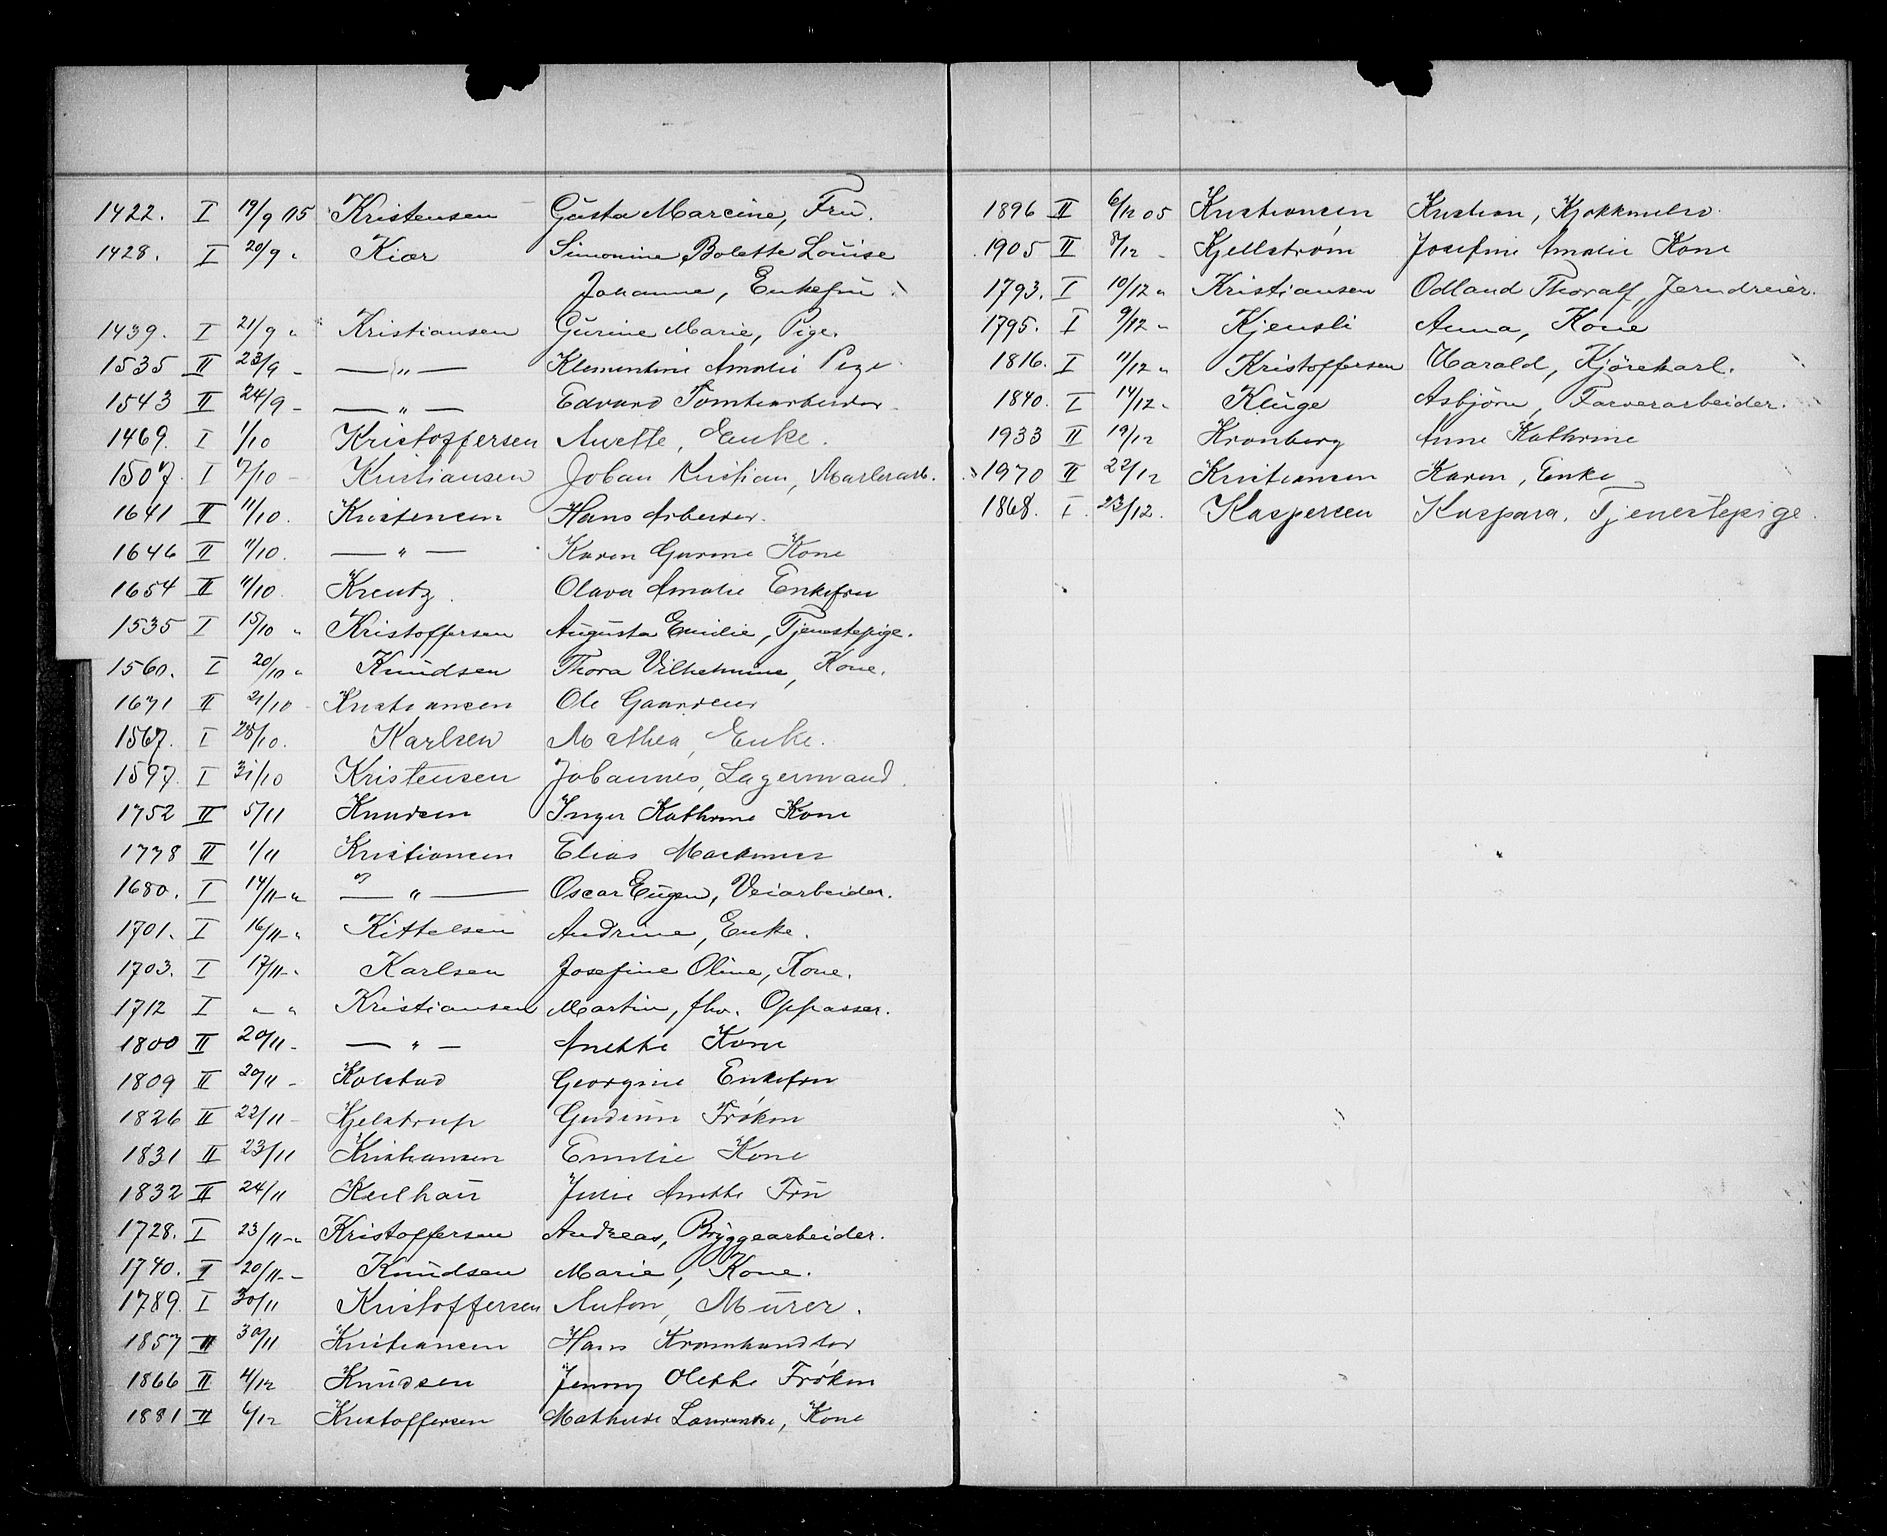 1422. I 19/9 05 Kristensen Gusta Marcine, Fru.
1428. I 20/9 " Kiær Simonine Bolette Louise
Johanne, Enkefru
1439. I 21/9 " Kristiansen Gurine Marie, Pige.
1535 II 23/9 - — " — Klementine Amalie Pige
1543 II 24/9 - — " — Edvard Tomtearbeider
1469. I 1/10 Kristoffersen Anette, Enke.
1507. I 7/10 - Kristiansen Johan Kristian, Malerarb.
1641 II 11/10. Kristensen Hans Arbeider.
1646 II 11/10. — " — Karen Gurine Kone
1654 II 11/10. Kreutz. Olava Amalie Enkefru
1535 I 15/10 " Kristoffersen Augusta Emilie, Tjenestepige.
1560. I 20/10 " Knudsen Thora Vilhelmine, Kone.
1671 II 21/10 - Kristiansen Ole Gaardeier
1567. I 28/10. Karlsen Mathea, Enke.
1597. I 31/10 Kristensen Johannes, Lagermand.
1752 II 5/11 Knudsen Inger Kathrine Kone
1778 II 1/11 Kristiansen Elias
1680. I 14/11 - " — " — Oscar Eugen, Veiarbeider.
1701. I 16/11 - " Kittelsen Andrine, Enke.
1703. I 17/11 - " Karlsen Josefine Oline, Kone.
1712 I " " Kristiansen Martin, fhv. Oppasser.
1800 II 20/11 - — " — Anette Kone
1809 II 20/11 - Kolstad Georgine Enkefru
1826 II 22/11 - Kjelstrup Gudrun Frøken
1831 II 23/11 Kristiansen Emilie Kone
1832 II 24/11 Keilhau Julie Anette Fru
1728. I 23/11 - " Kristoffersen Andreas, Bryggearbeider.
1740. I 20/11 - - Knudsen Marie, Kone.
1789. I 30/11 Kristoffersen Anton, Murer.
1857 II 30/11 Kristiansen Hans Kramhandler
1866 II 4/12 Knudsen Jenny Olette Frøken
1881 II 6/12 Kristoffersen Mathilde Laurentse, Kone
1896 II 6/12 05 Kristiansen Kristian,
1905 II 8/12 - Kjellstrøm Josefine Amalie Kone
1793. I 10/12 " Kristiansen Odland Thoralf, Jerndreier.
1795. I 9/12 " Kjensli Anna, Kone
1816. I 11/12 " Kristoffersen Harald, Kjørekarl.
1840. I 14/12 " Kluge Asbjørn, Farverarbeider.
1933 II 19/12 Kronberg Anne Kathrine
1970 II 22/12 Kristiansen Karen, Enke
1868. I. 23/12. Kaspersen Kaspara, Tjenestepige.